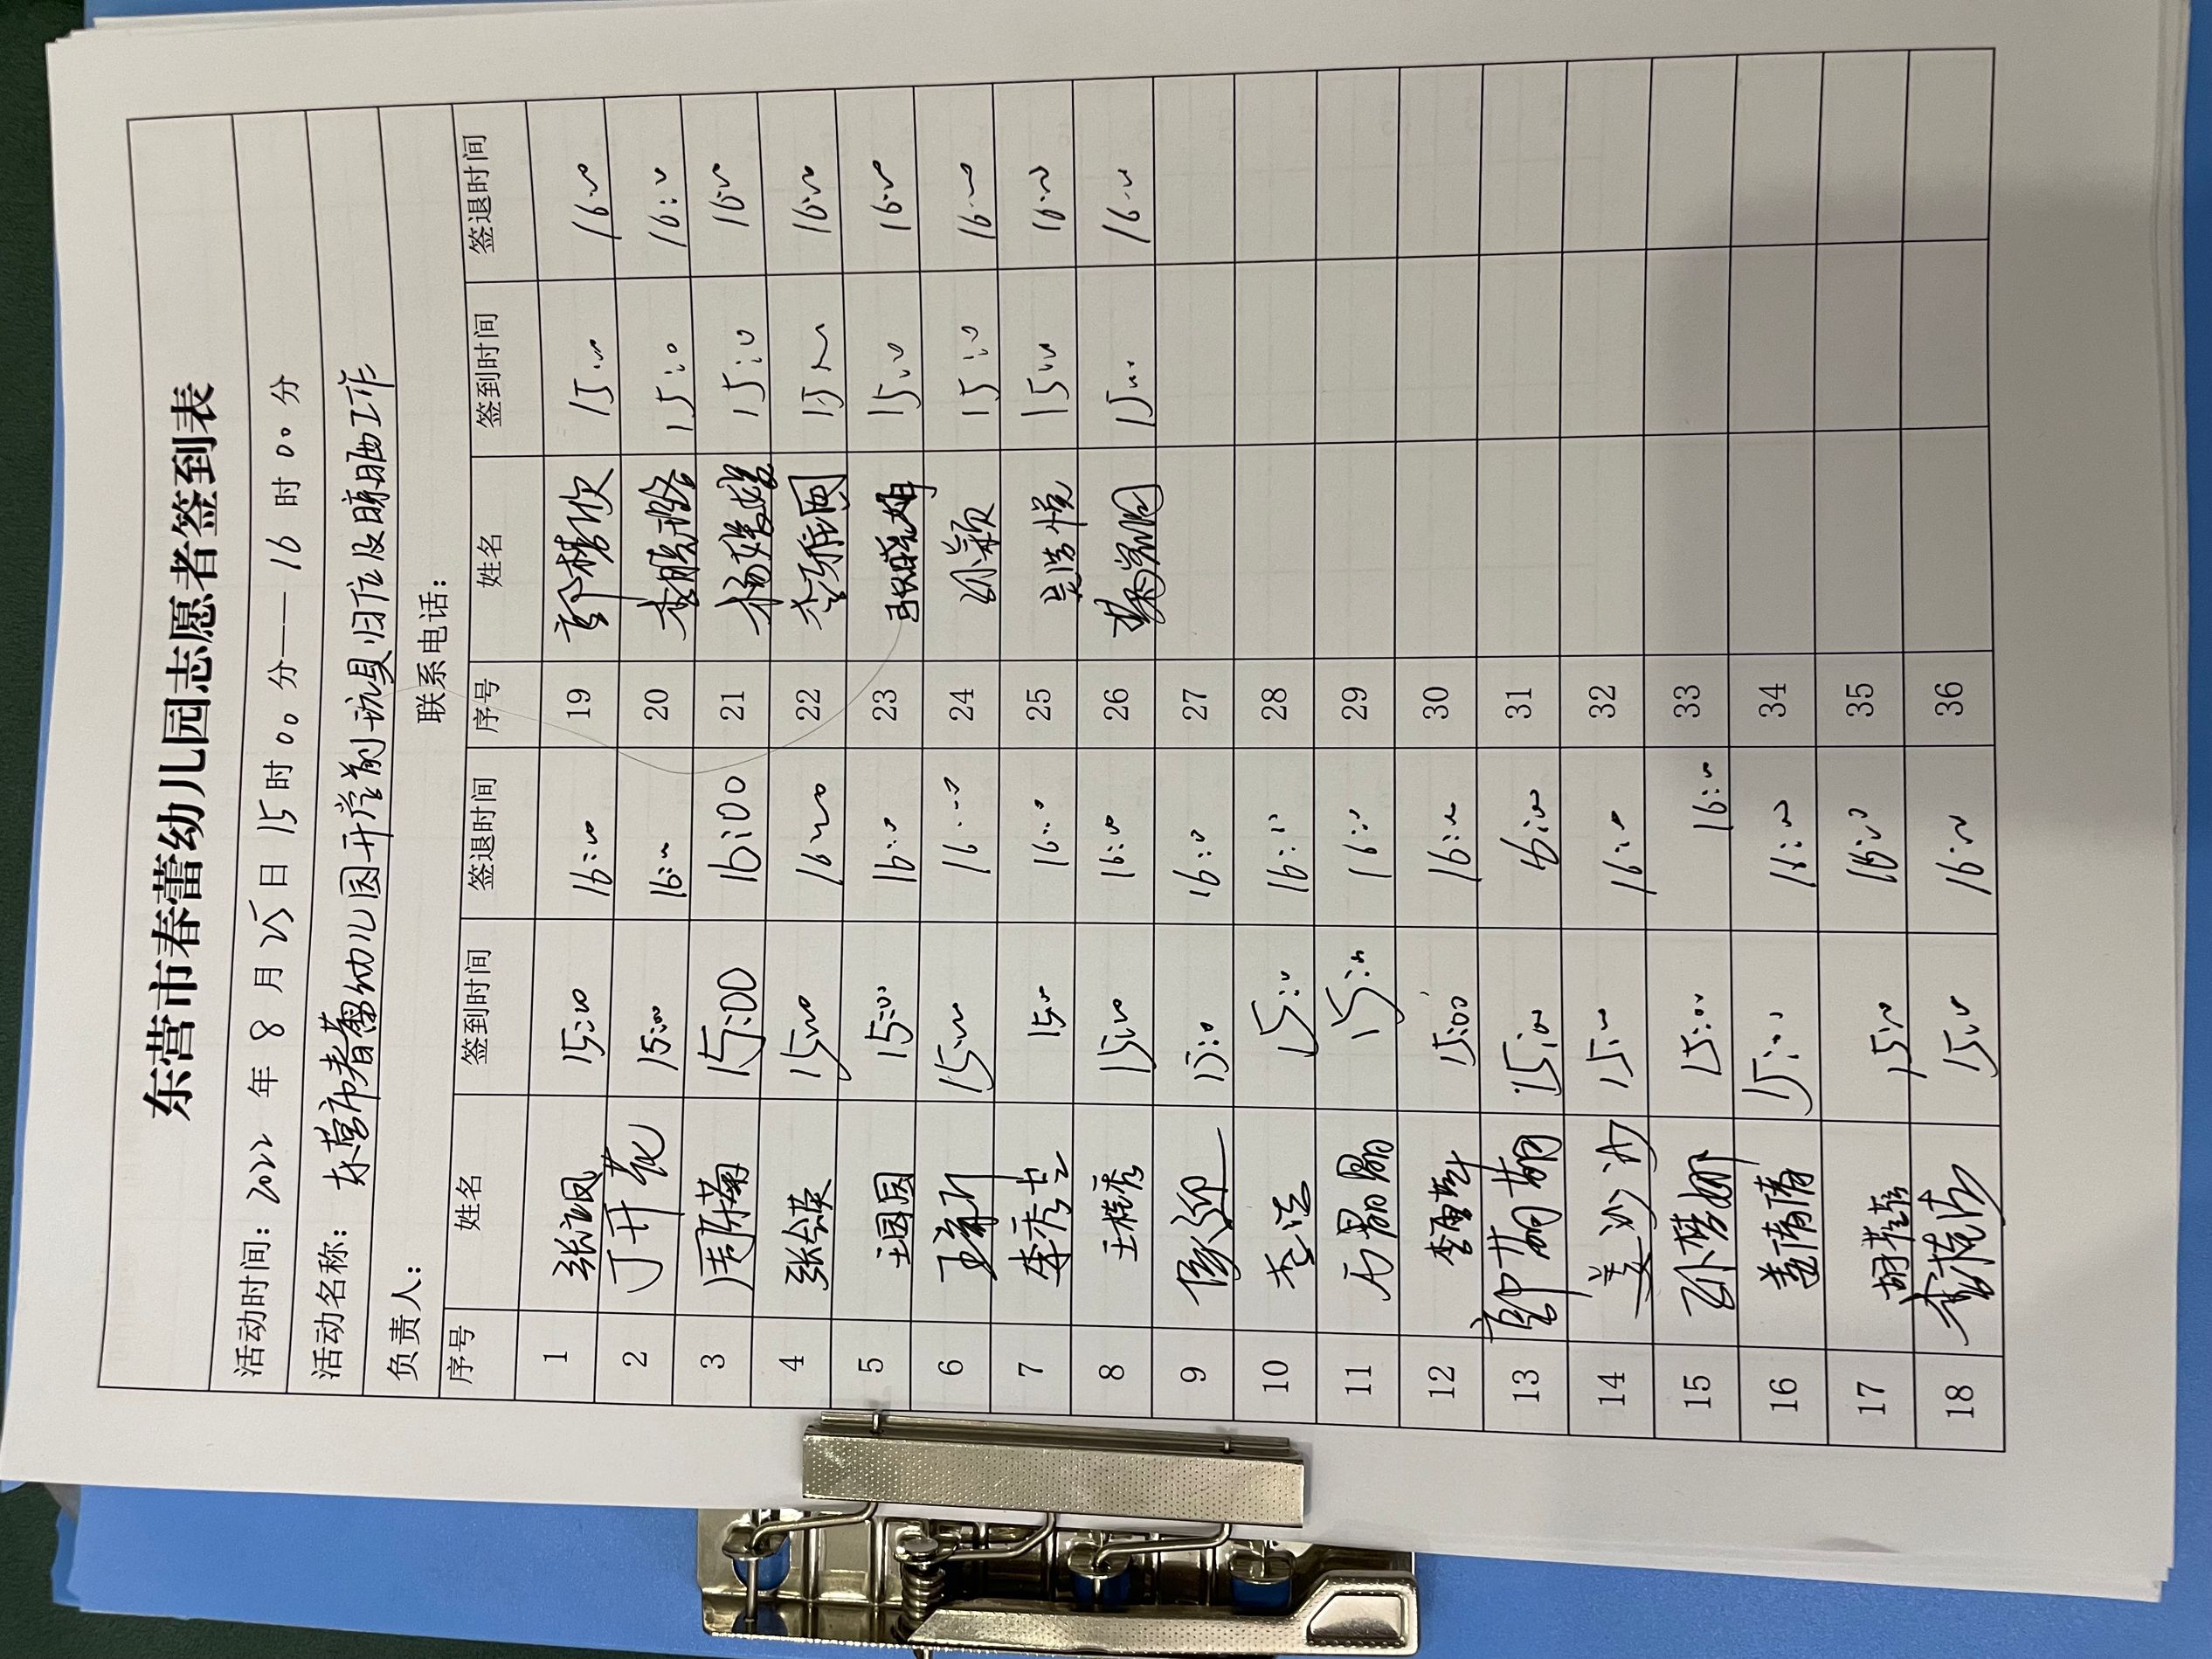 东营市春蕾幼儿园志愿者签到表
活动时间：2022 年 8 月 25 日 15 时 00 分——16 时 00 分
活动名称：东营市春蕾幼儿园开学前玩具归位及晾晒工作
负责人： 联系电话：
序号 姓名 签到时间 签退时间 序号 姓名 签到时间 签退时间
1 张凤 15:00 16:00 19 郭梦欣 15:00 16:00
2 丁开花 15:00 16:00 20 李晓璐 15:00 16:00
3 周菊 15:00 16:00 21 杨婷婷 15:00 16:00
4 张会英 15:00 16:00 22 李雅闽 15:00 16:00
5 王园园 15:00 16:00 23 15:00 16:00
6 15:00 16:00 24 孙颖 15:00 16:00
7 李秀芸 15:00 16:00 25 吴浩悦 15:00 16:00
8 王桂秀 15:00 16:00 26 15:00 16:00
9 侯迎 15:00 16:00 27
10 李洁 15:00 16:00 28
11 石晶晶 15:00 16:00 29
12 15:00 16:00 30
13 郭萌萌 15:00 16:00 31
14 姜沙沙 15:00 16:00 32
15 孙梦娜 15:00 16:00 33
16 盖倩倩 15:00 16:00 34
17 胡菲菲 15:00 16:00 35
18 15:00 16:00 36